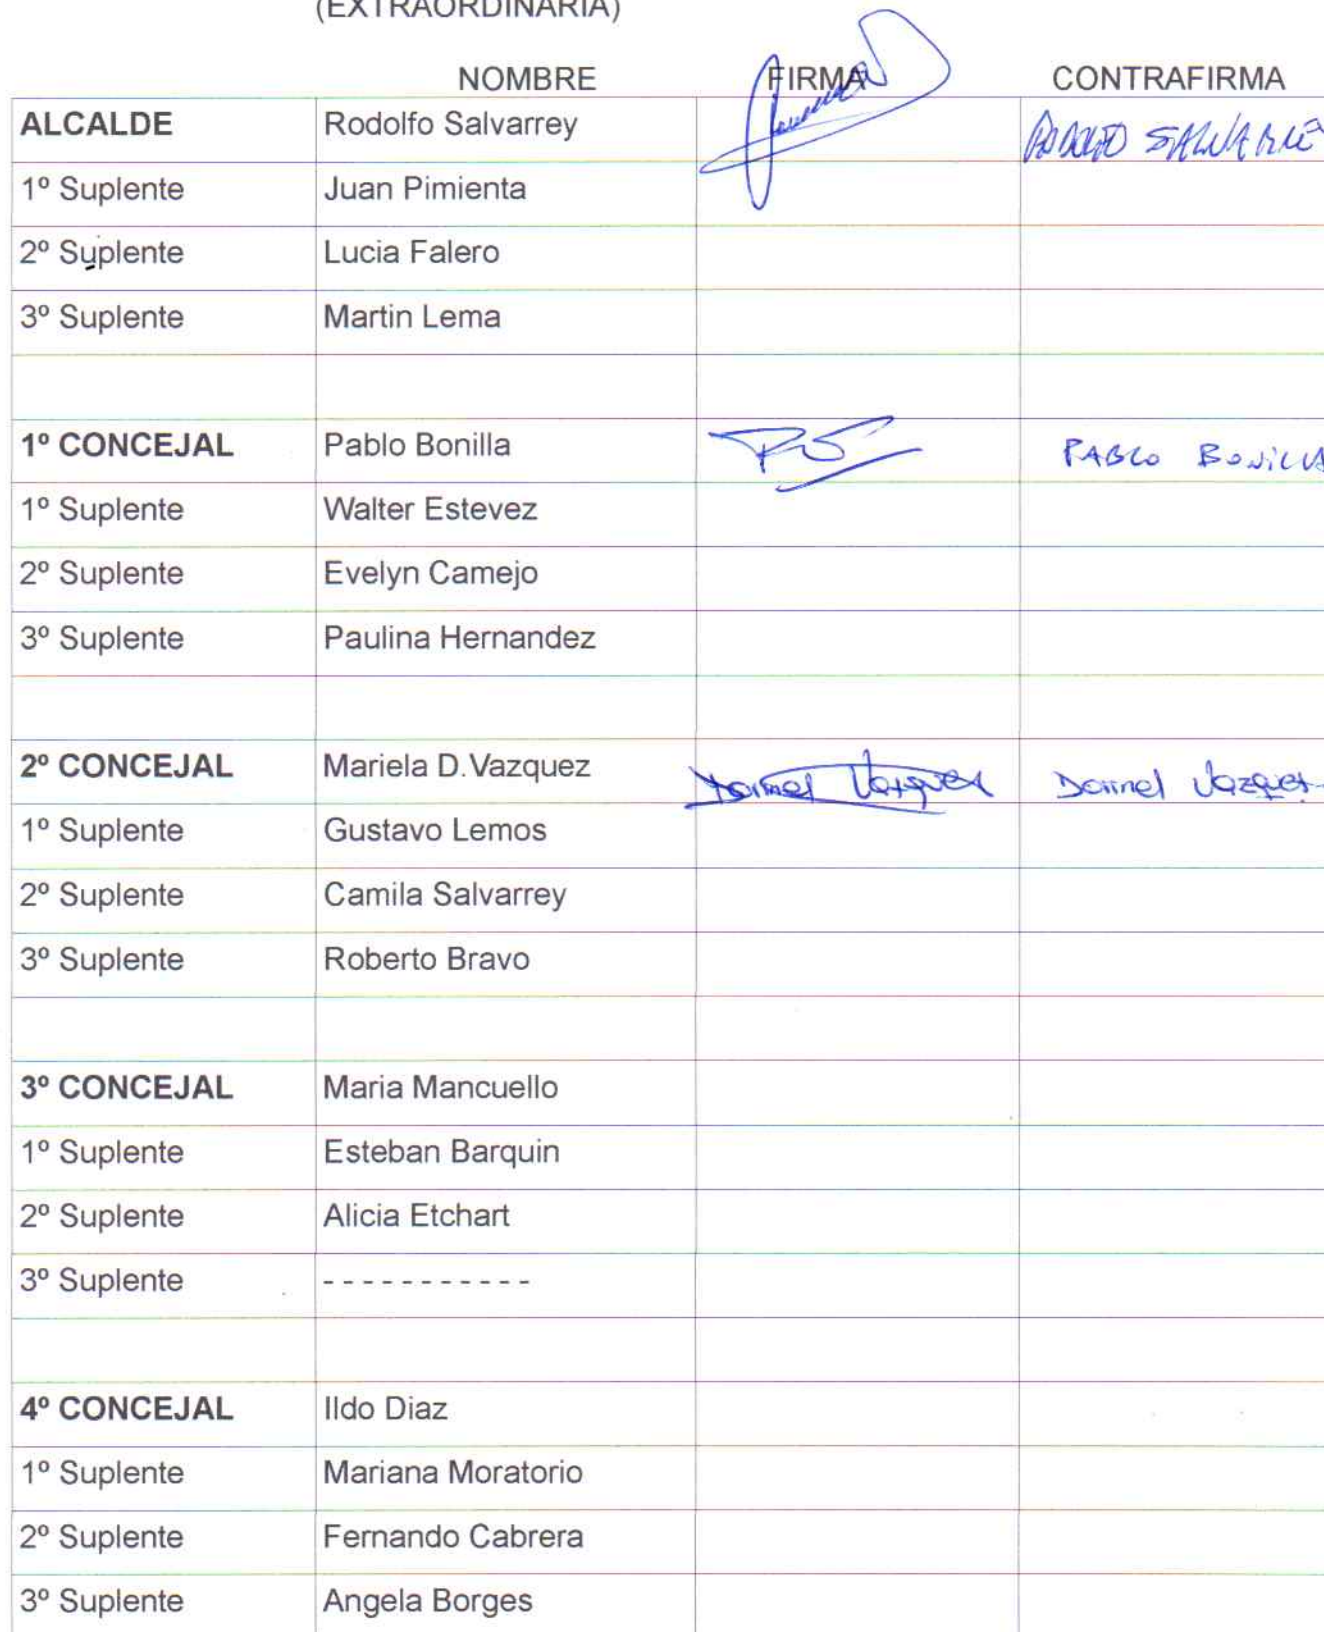 (EXTRAORDINARIA)
NOMBRE FIRMA CONTRAFIRMA
ALCALDE Rodolfo Salvarrey RODOLFO SALVARRE
1º Suplente Juan Pimienta
2º Suplente Lucia Falero
3º Suplente Martin Lema
1º CONCEJAL Pablo Bonilla PABLO BONILLA
1º Suplente Walter Estevez
2º Suplente Evelyn Camejo
3º Suplente Paulina Hernandez
2º CONCEJAL Mariela D.Vazquez Vazquez Vazquez
1º Suplente Gustavo Lemos
2º Suplente Camila Salvarrey
3º Suplente Roberto Bravo
3º CONCEJAL Maria Mancuello
1º Suplente Esteban Barquin
2º Suplente Alicia Etchart
3º Suplente - - - - - - - - - - -
4º CONCEJAL Ildo Diaz
1º Suplente Mariana Moratorio
2º Suplente Fernando Cabrera
3º Suplente Angela Borges